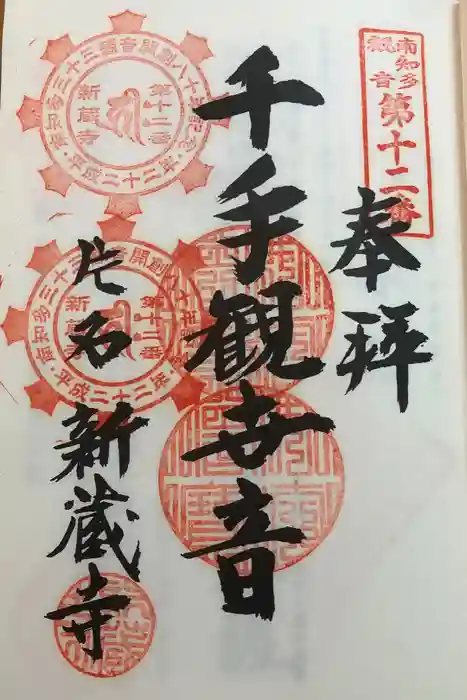 南知多
観音
第十二番
奉拝
千手観世音
片名 新蔵寺
南知多三十三観音開創八十年記念・平成二十二年・
第十二番
新蔵寺
南知多三十三観音開創八十年記念・平成二十二年・
第十二番
新蔵寺